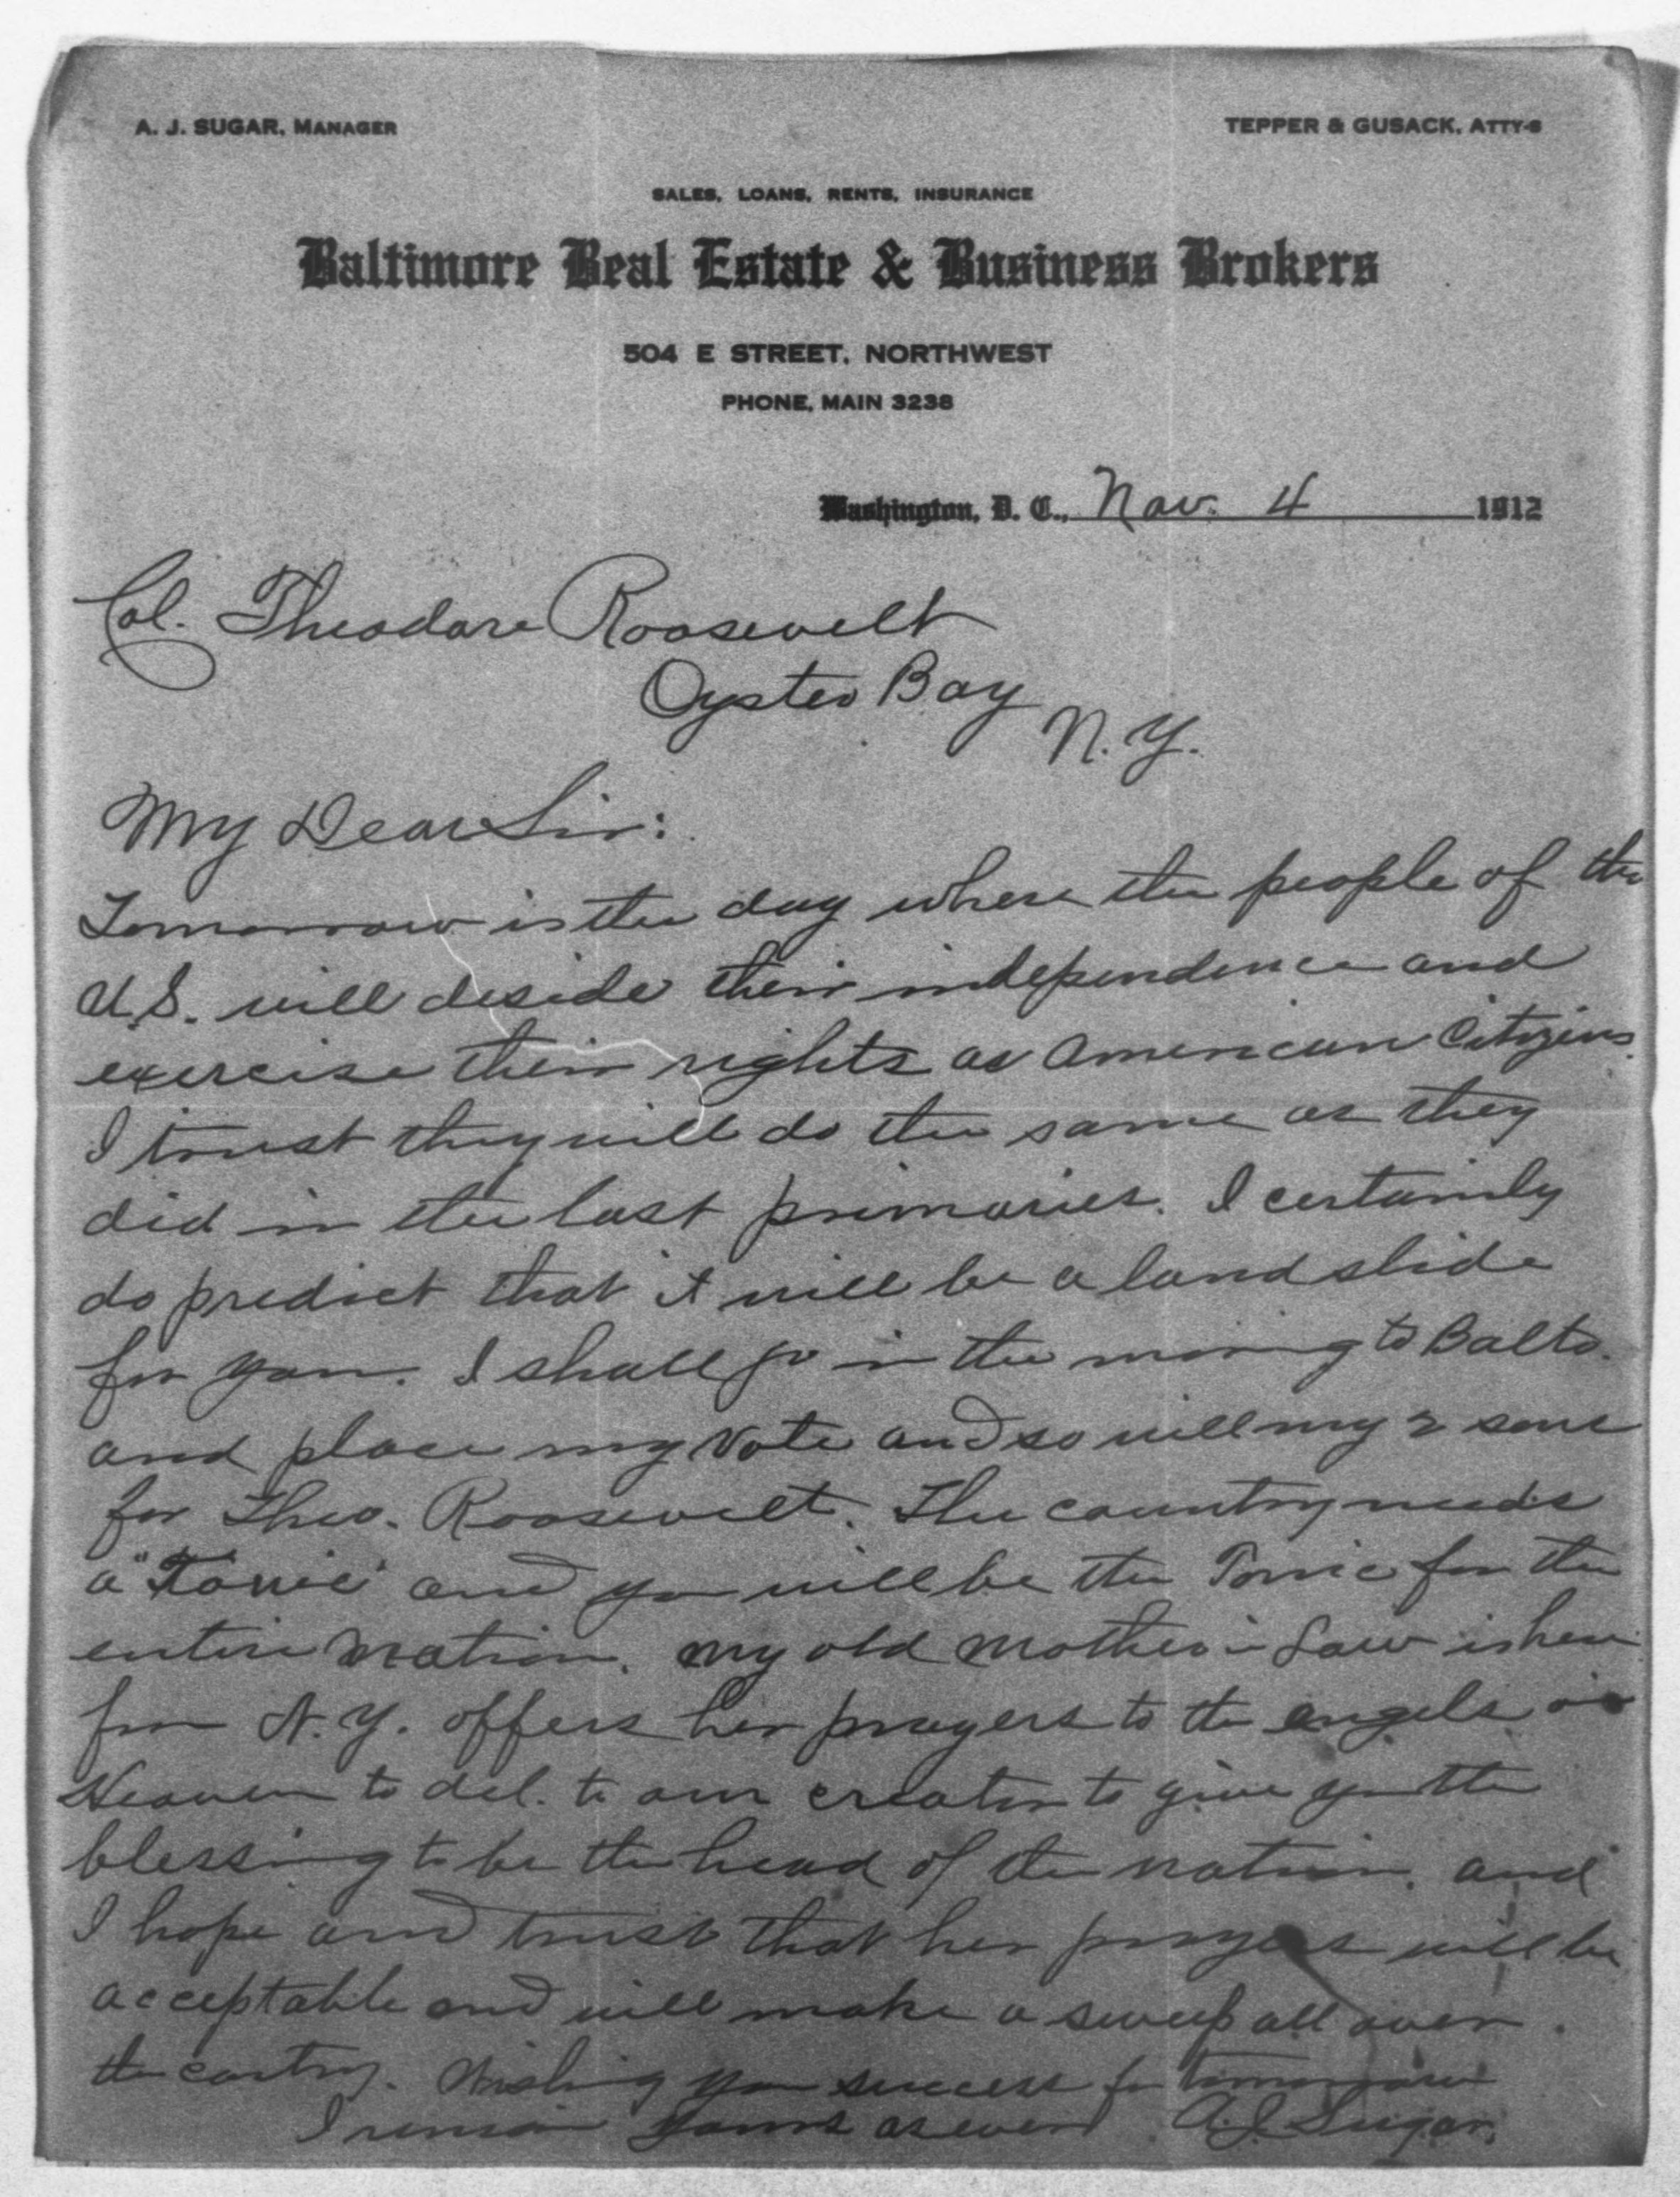 A. J. SUGAR, MANAGER
TEPPER & GUSACK, ATTY-S
SALES, LOANS, RENTS, INSURANCE
Baltimore Real Estate & Business Brokers
504 E STREET, NORTHWEST
PHONE, MAIN 3238
Washington, D. C., Nov. 4 1912
Col. Theodore Roosevelt
Oyster Bay
N. Y.
My Dear Sir:
Tomorrow is the day where the people of the
U.S. will deside their independence and
exercise their rights as American Citizens.
I trust they will do the same as they
did in the last primaries. I certainly
do predict that it will be a landslide
for you. I shall go in the morning to Balto.
and place my Vote and so will my 2 sons
for Theo. Roosevelt. The country needs
a "Tonic" and you will be the Tonic for the
entire Nation. My old Mother in Law is here
from N. Y. offers her prayers to the angels in
Heaven to del. to our creator to give you the
blessing to be the head of the nation. and
I hope and trust that her prayers will be
acceptable and will make a sweep all over
the contry. Wishing you success for tomorrow
I remain yours as ever A. J. Sugar.